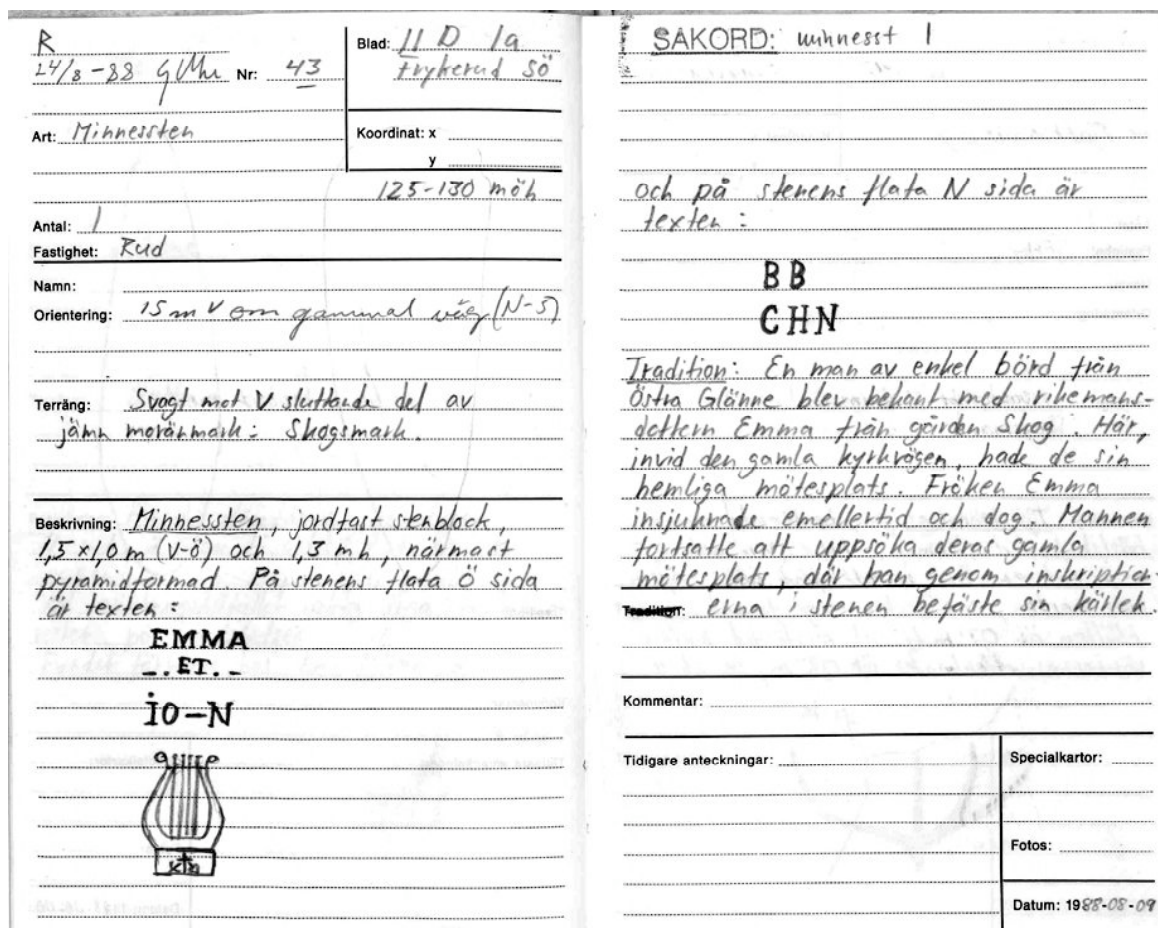 R
24/8-88 Nr: 43
Blad: 11 D 1a
Frykerud SÖ
Art: Minnessten
Koordinat: x
y
125-130 möh
Antal: 1
Fastighet: Rud
Namn:
Orientering: 15 m V om gammal väg (N-S)
Terräng: Svagt mot V sluttande del av
jämn moränmark: Skogsmark.
Beskrivning: Minnessten, jordfast stenblock,
1,5 x 1,0 m (V-Ö) och 1,3 m h, närmast
pyramidformad. På stenens flata Ö sida
är texten:
EMMA
_.ET._
iO-N
SAKORD: minnesst 1
och på stenens flata N sida är
texten:
BB
CHN
Tradition: En man av enkel börd från
Östra Glänne blev bekant med rikemans-
dottern Emma från gården Skog. Här,
invid den gamla kyrkvägen, hade de sin
hemliga mötesplats. Fröken Emma
insjuknade emellertid och dog. Mannen
fortsatte att uppsöka deras gamla
mötesplats, där han genom inskription-
Tradition: erna i stenen befäste sin kärlek.
Kommentar:
Tidigare anteckningar:
Specialkartor:
Fotos:
Datum: 1988-08-09